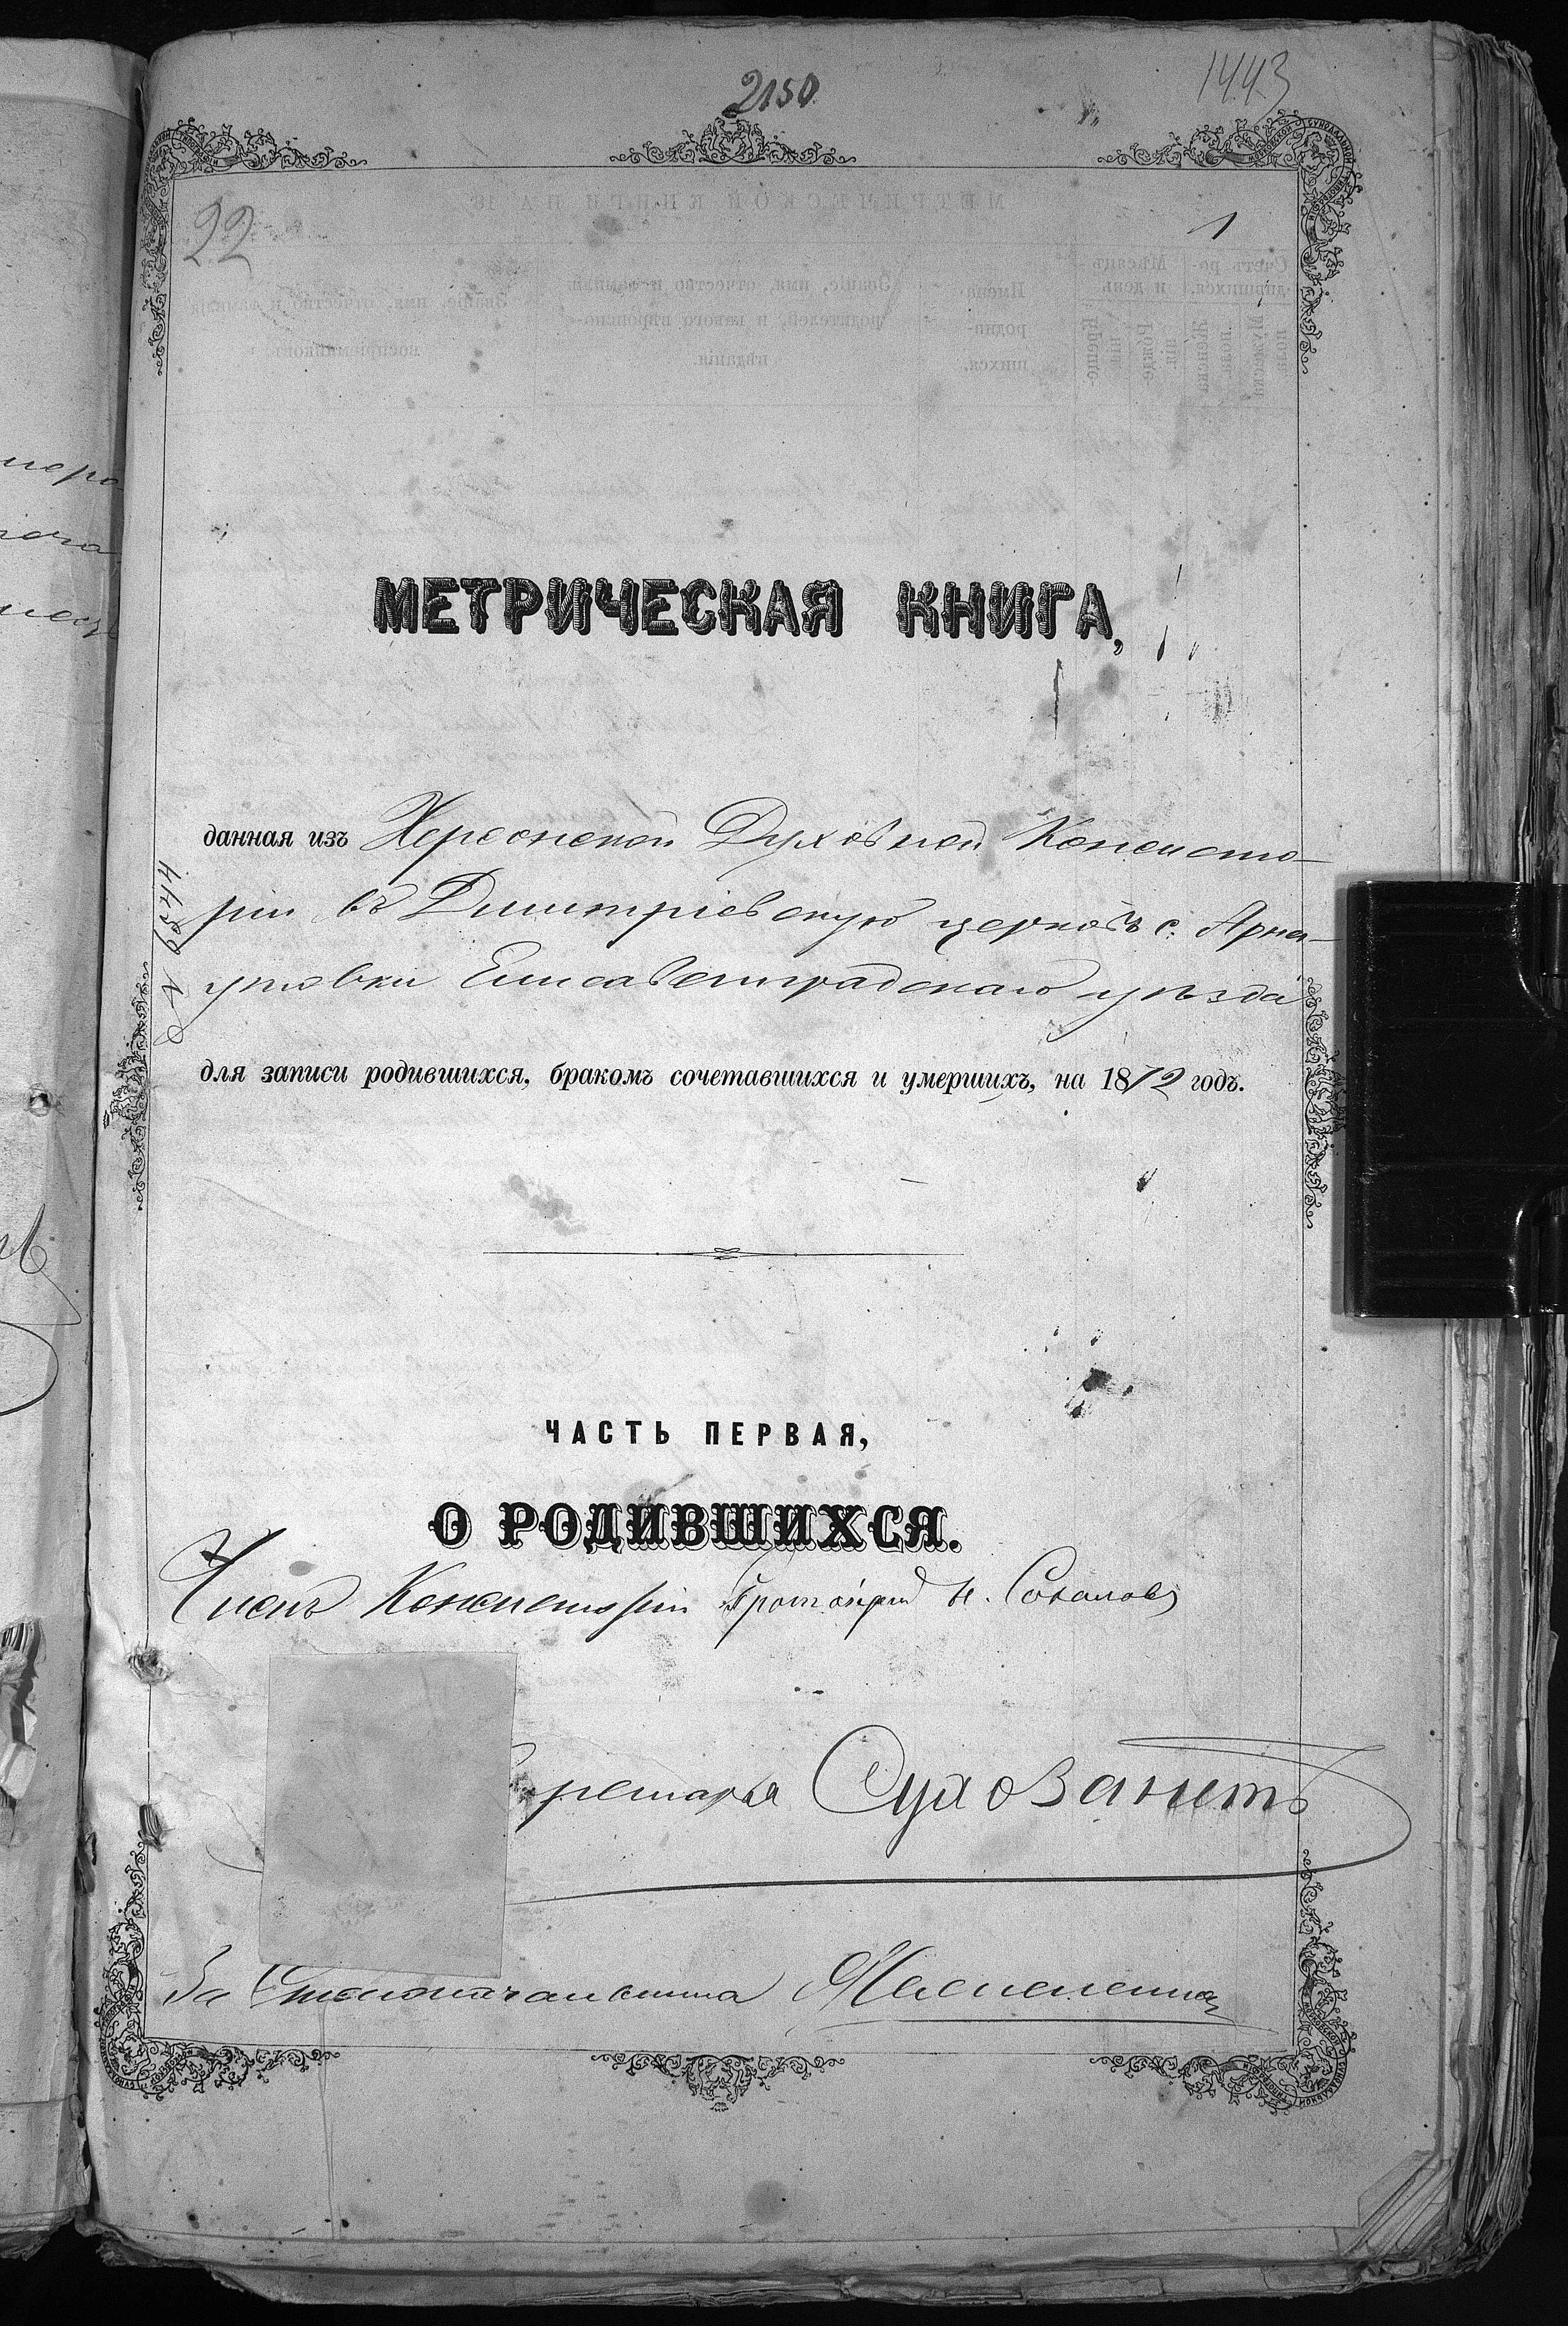 2150
1443
22
1
МЕТРИЧЕСКАЯ КНИГА,
данная изъ Херсонской Духовной Консисто-
ріи въ Димитріевскую церковь с. Арна-
утовки Елисаветградскаго уѣзда
для записи родившихся, бракомъ сочетавшихся и умершихъ, на 1872 годъ.
ЧАСТЬ ПЕРВАЯ,
О РОДИВШИХСЯ.
Членъ Консисторіи Протоіерей Н. Соколовъ
кретаря
За Столоначальника